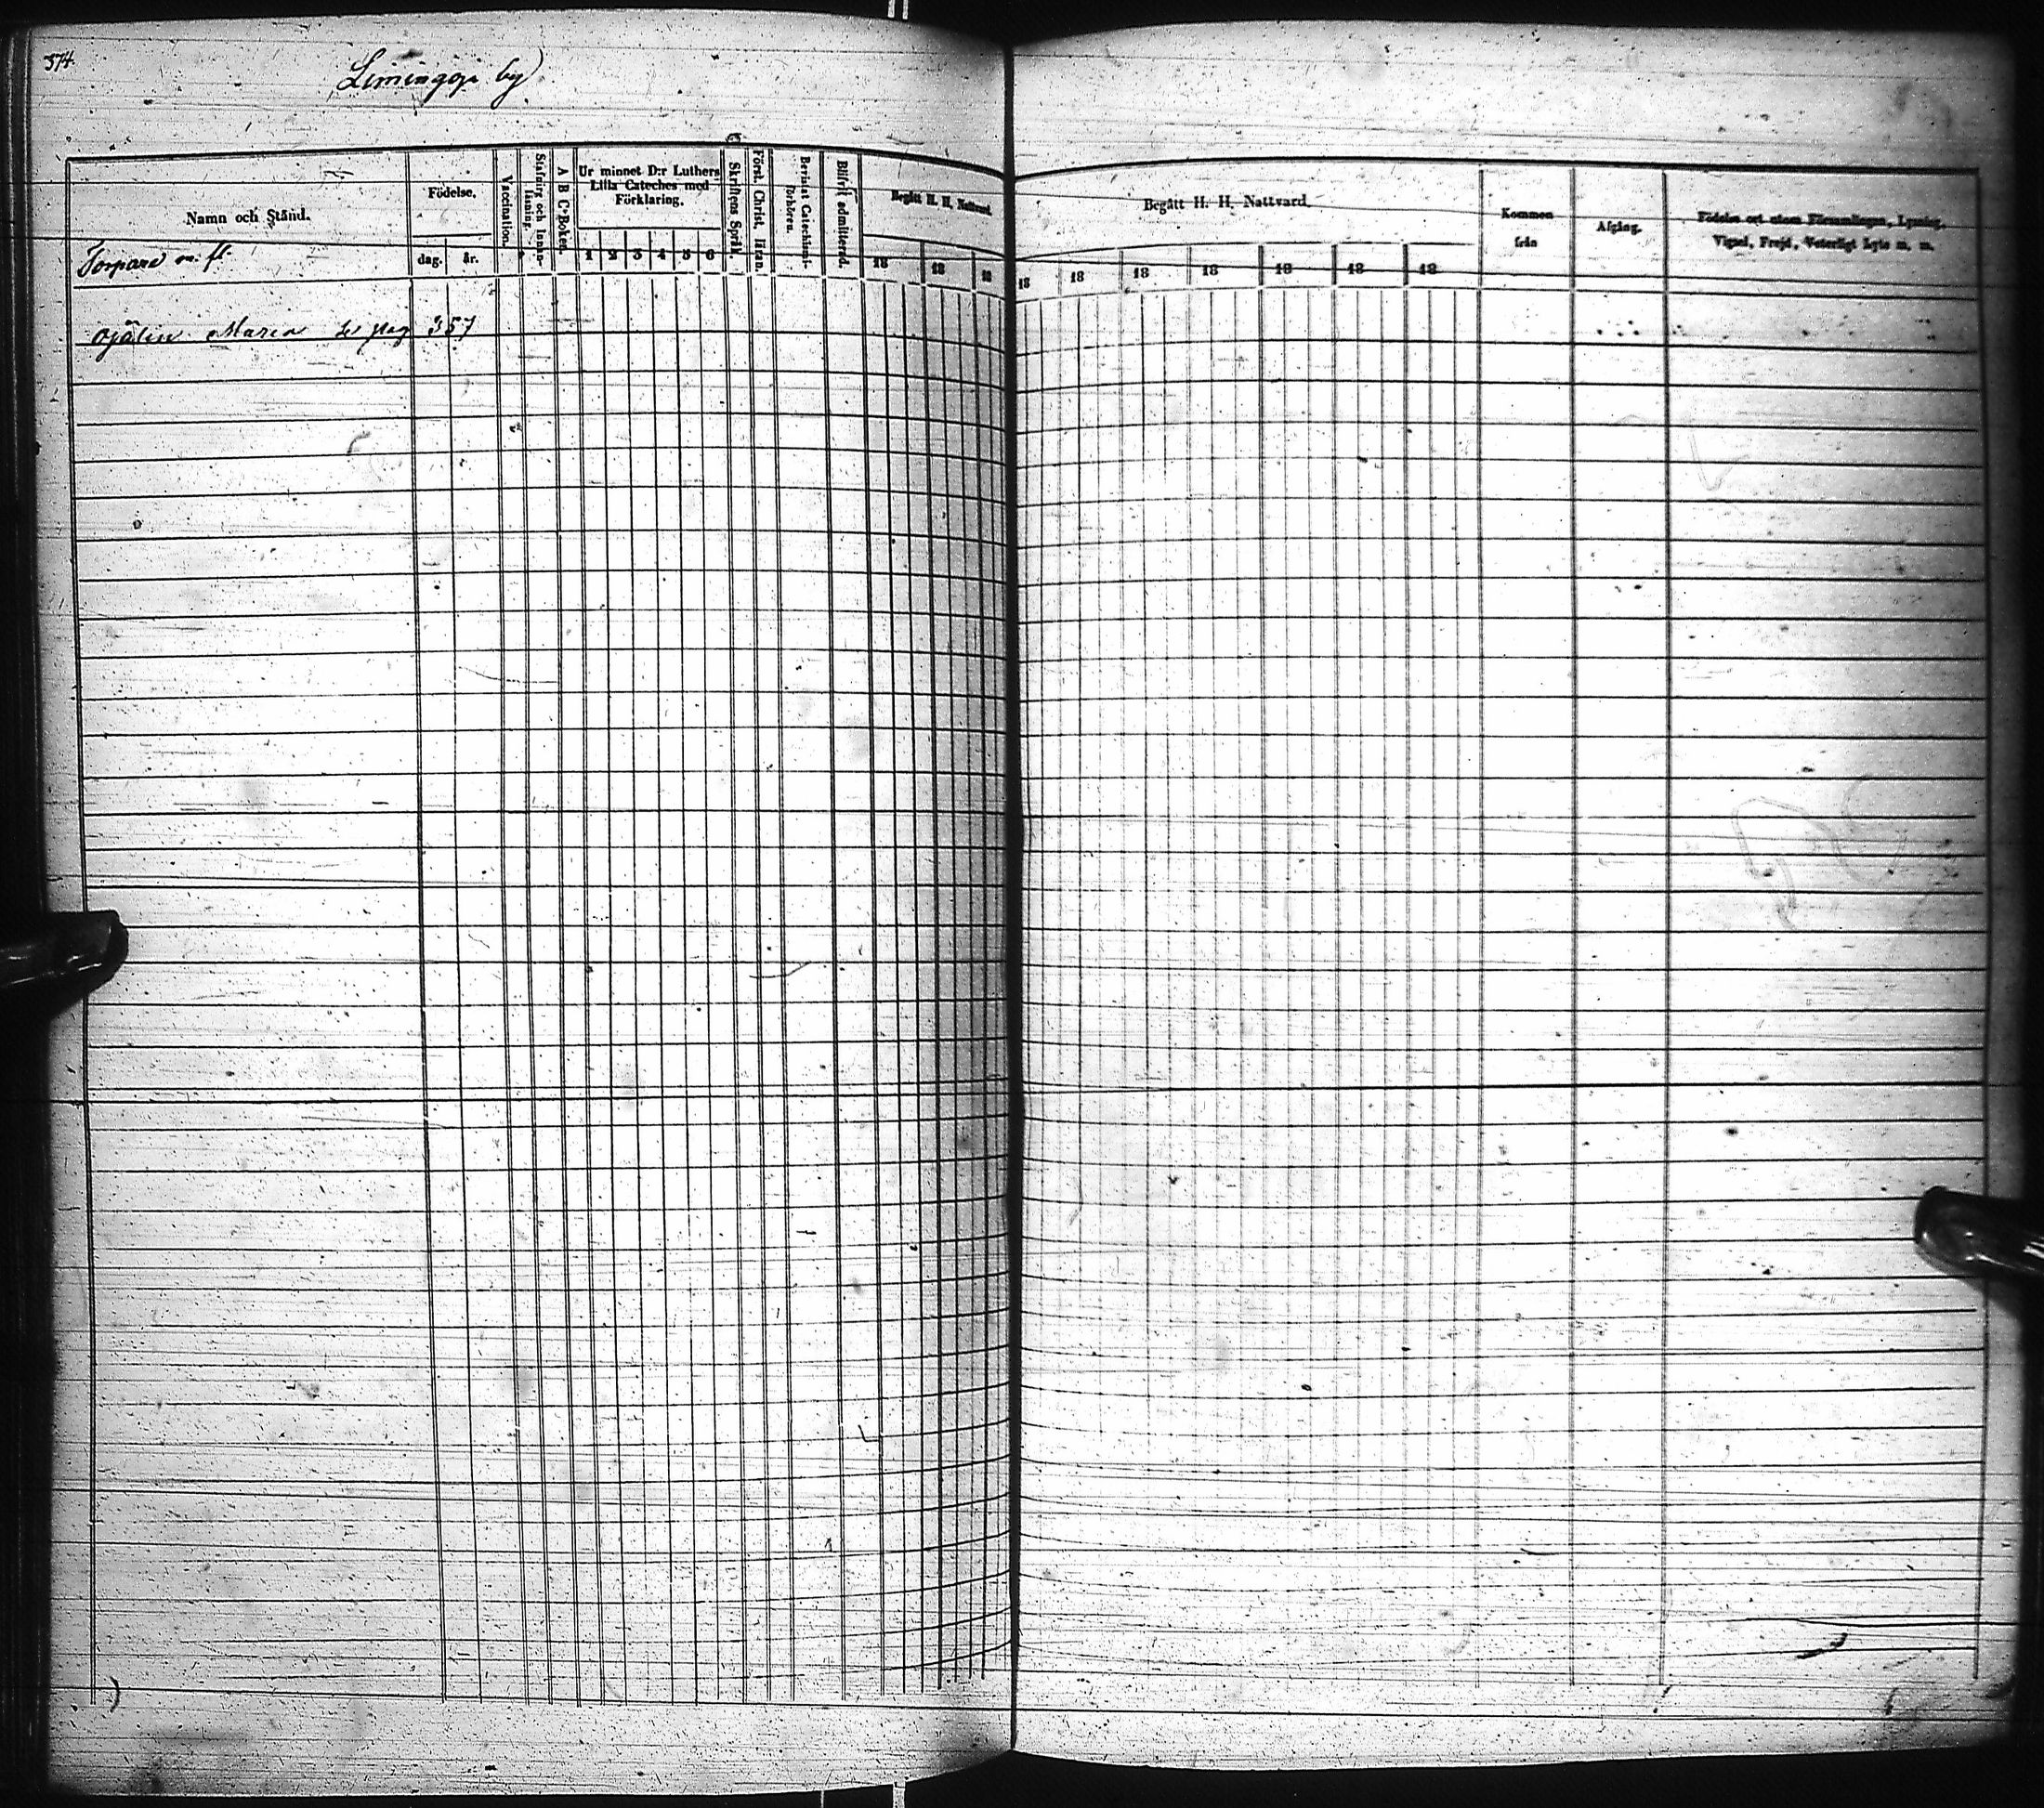 374.
Limingoja by
Namn och Stånd.
Födelse.
Vaccination.
Stafning och Innan-läsning.
A B C-Boken.
Ur minnet D:r Luthers
Lilla Cateches med
Förklaring.
Skriftens Språk.
Först. Christ. lifan.
Bevistat Catechismi-förhören.
Blifvit admitterad.
Begått H. H. Nattvard.
Begått H. H. Nattvard.
Kommen
från
Afgång.
Födelse ort utom Församlingen, Lysning,
Vigsel, Frejd, Veterligt Lyte m. m.
Torpare m. fl.
dag. år. 1 2 3 4 5 6 18 18 18 18 18 18 18 18 18 18
Ojalin Maria se pag 357